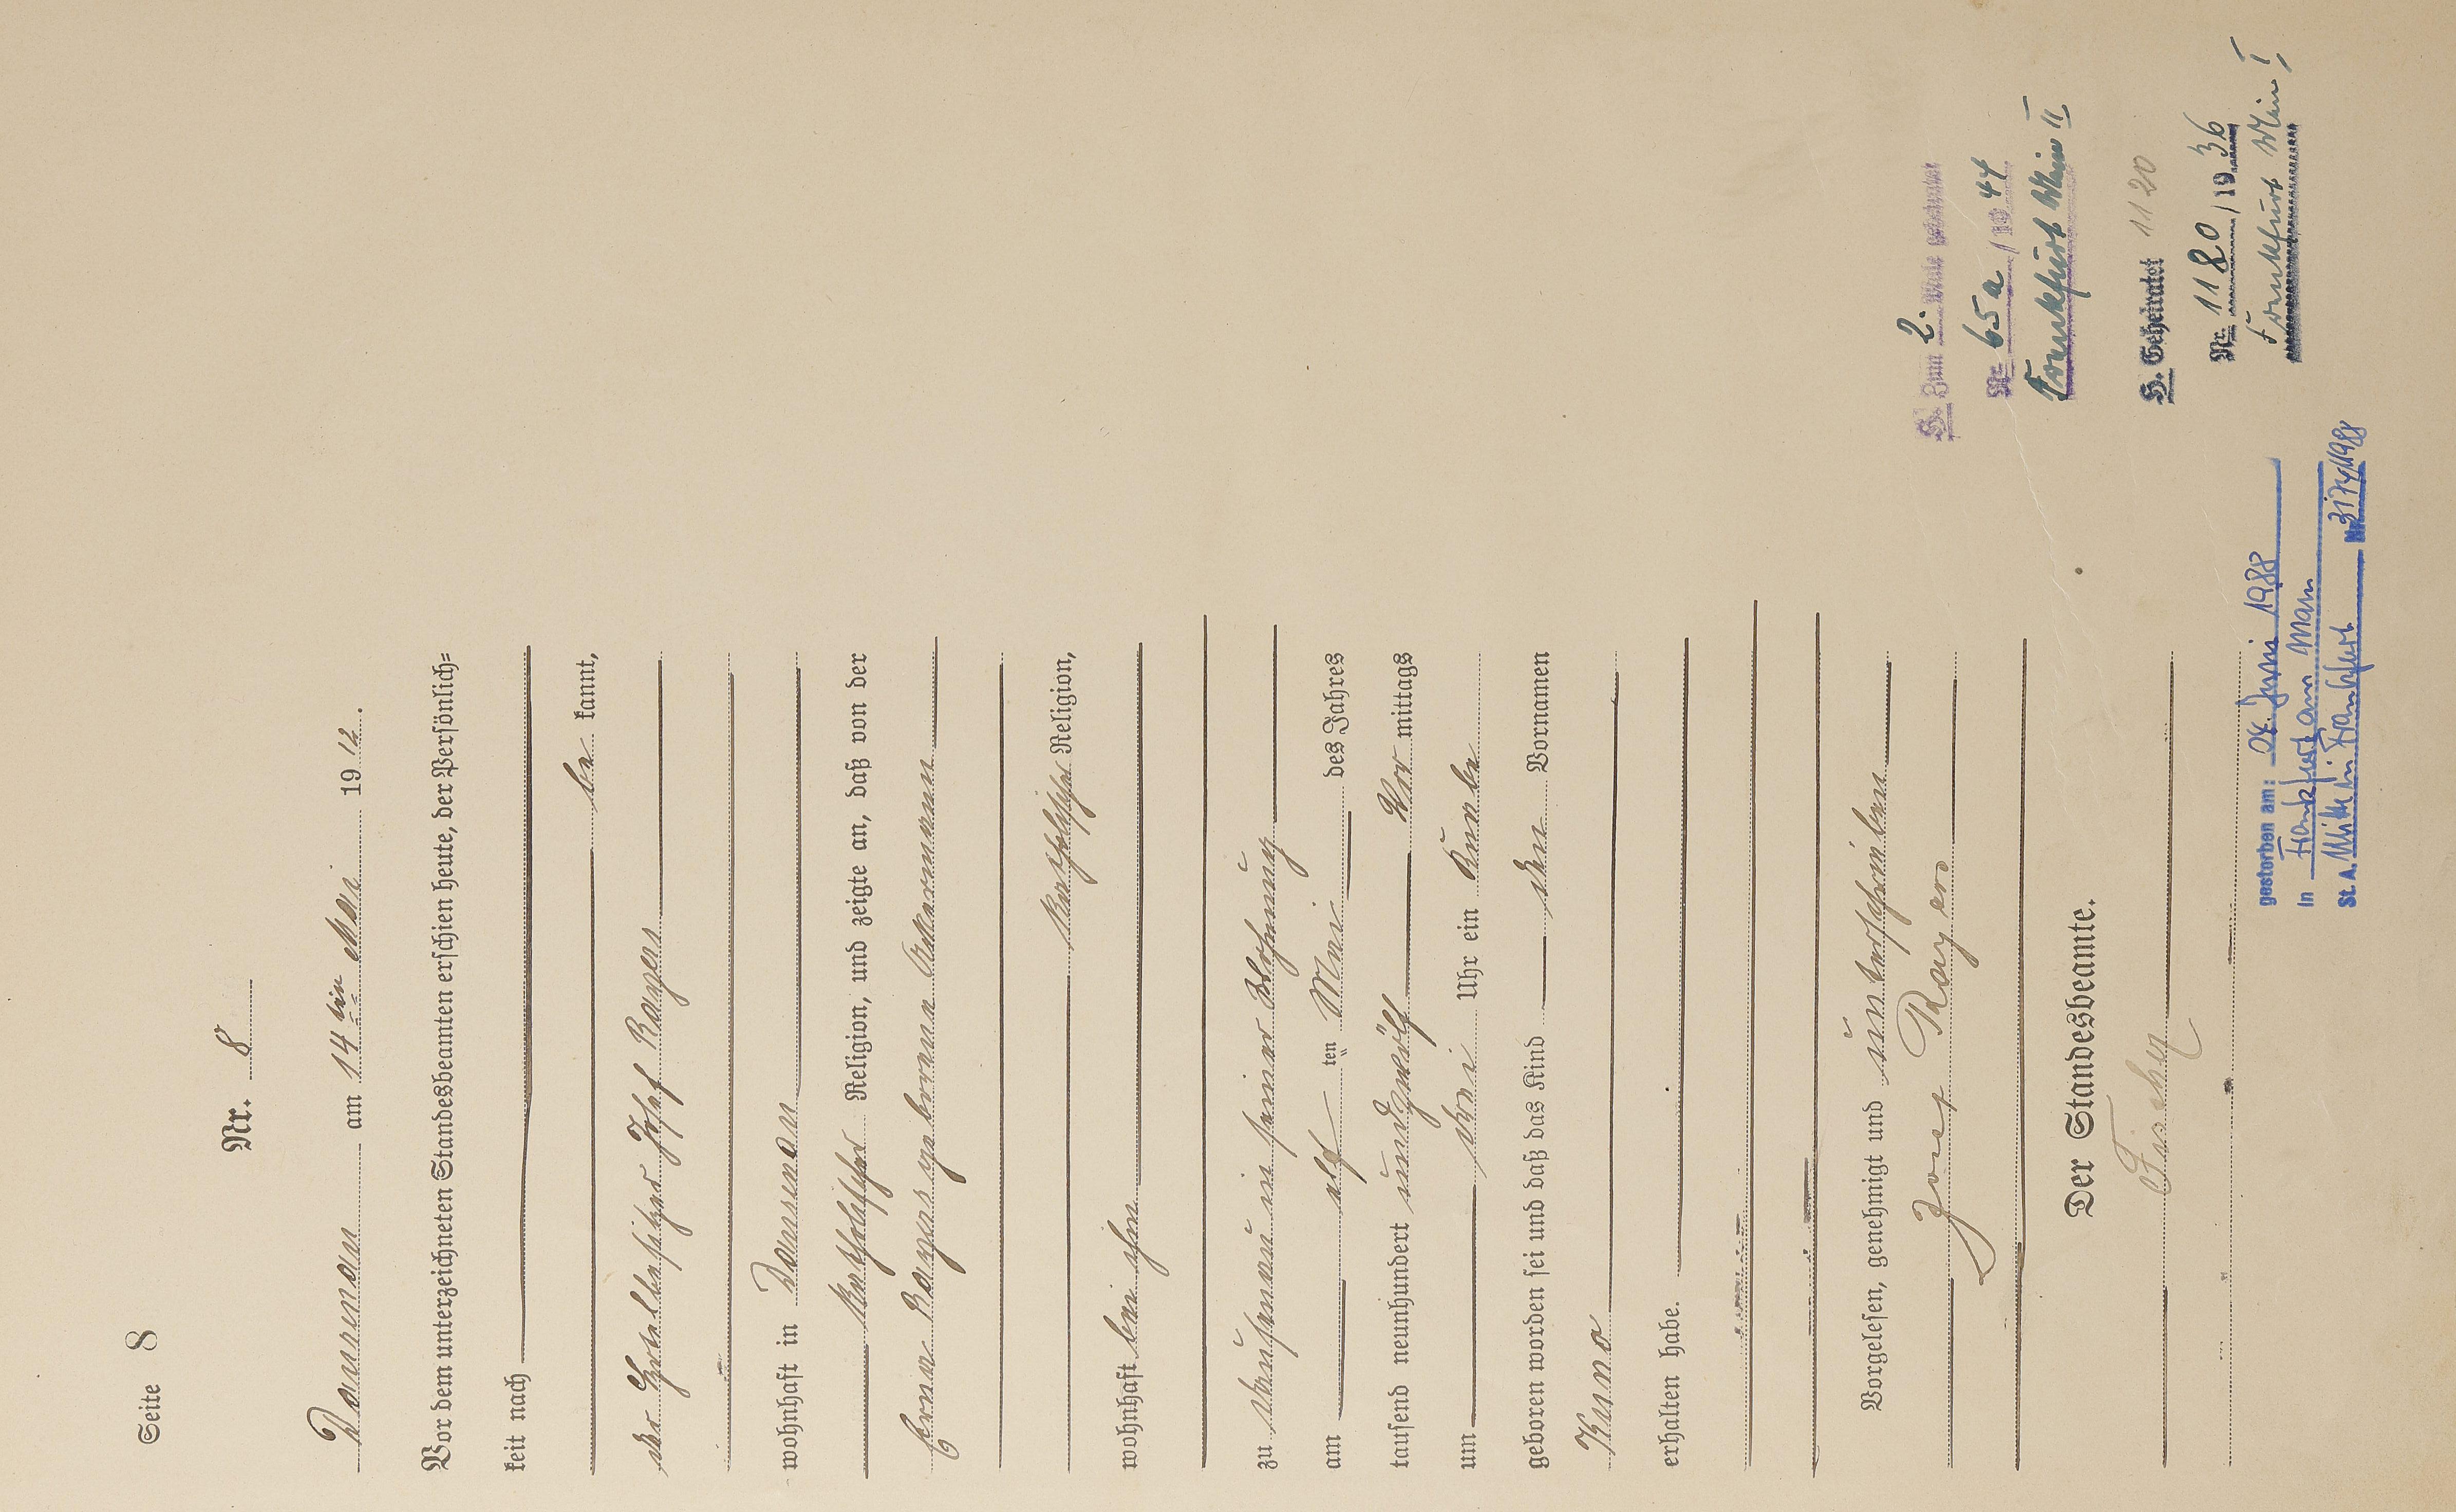 Seite 8
Nr. 8
Dausenau am 14ten Mai 1912.
Vor dem unterzeichneten Standesbeamten erschien heute, der Persönlich=
keit nach
be kannt,
der Hotelbesitzer Josef Bayer
wohnhaft in Dausenau
katholischer Religion, und zeigte an, daß von der
Bayer geborene Ackermann
katholischer Religion,
wohnhaft bei ihm
zu Dausenau in seiner Wohnung
am elf ten Mai des Jahres
tausend neunhundert und zwölf Vor mittags
um drei Uhr ein Knabe
geboren worden sei und daß das Kind den Vornamen
Kuno
erhalten habe.
Vorgelesen, genehmigt und unterschrieben
Josef Bayer
Der Standesbeamte.
Fischer
H. Zum 2. Male geheiratet
Nr. 65a/1944
Frankfurt Main II
H. Geheiratet 1120
Nr. 1180/1936
Frankfurt Main I
gestorben am: 04. Juni 1988
in Frankfurt am Main
St. A. Mitte in Frankfurt Nr. 3174/1988